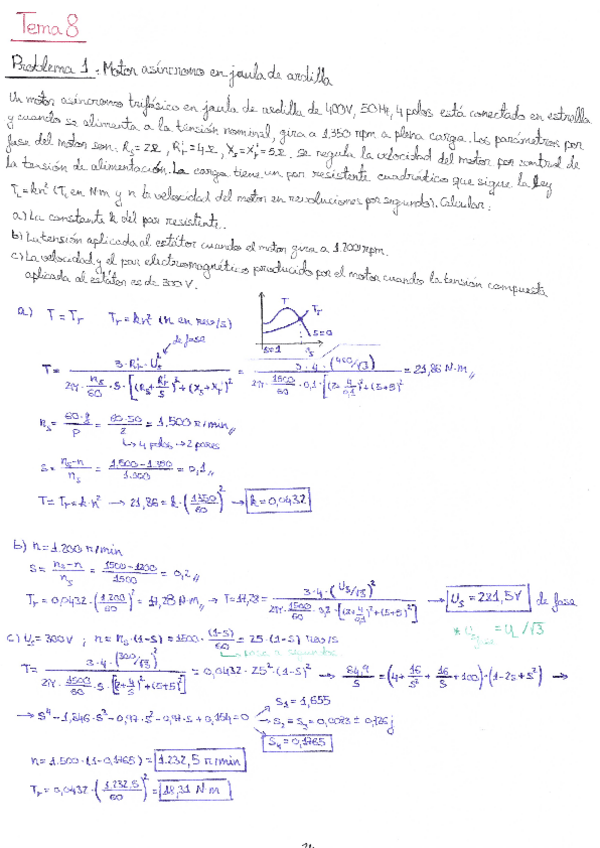 Tema 8
Problema 1. Motor asíncrono en jaula de ardilla
Un motor asíncrono trifásico en jaula de ardilla de 400V, 50Hz, 4 polos está conectado en estrella
y cuando se alimenta a la tensión nominal, gira a 1.350 rpm a plena carga. Los parámetros por
fase del motor son: Rs = 2Ω, Rr' = 4Ω, Xs = Xr' = 5Ω. Se regula la velocidad del motor por control de
la tensión de alimentación. La carga tiene un par resistente cuadrático que sigue la ley
TL = kn² (TL en Nm y n la velocidad del motor en revoluciones por segundo). Calcular:
a) La constante k del par resistente.
b) La tensión aplicada al estátor cuando el motor gira a 1.200 rpm.
c) La velocidad y el par electromagnético producido por el motor cuando la tensión compuesta
aplicada al estátor es de 300V.
a) T = Tr Tr = kn² (n en rev/s)
T Tr
s=1 ns s=0
de fase
T = 3·Rr'·Us² / (2π·ns/60·s·[(Rs+Rr'/s)²+(Xs+Xr')²]) = 3·4·(400/√3)² / (2π·1500/60·0,1·[(2+4/0,1)²+(5+5)²]) = 21,86 N·m
ns = 60·f/p = 60·50/2 = 1.500 r/min
↳ 4 polos → 2 pares
s = (ns-n)/ns = (1.500-1.350)/1.500 = 0,1
T = Tr = k·n² → 21,86 = k·(1350/60)² → k = 0,0432
b) n = 1.200 r/min
s = (ns-n)/ns = (1500-1200)/1500 = 0,2
Tr = 0,0432·(1.200/60)² = 17,28 N·m → T = 17,28 = 3·4·(Us/√3)² / (2π·1500/60·0,2·[(2+4/0,1)²+(5+5)²]) → Us = 281,5V de fase
* Us fase = UL/√3
c) Us = 300V ; n = ns·(1-s) = 1500·(1-s)/60 = 25·(1-s) rev/s
T = 3·4·(300/√3)² / (2π·1500/60·s·[(2+4/s)²+(5+5)²]) = 0,0432·25²·(1-s)² → 84,9/s = (4+16/s²+16/s+100)·(1-2s+s²) →
→ s⁴-1,846·s³-0,97·s²-0,97·s+0,154=0
s₁ = 1,655
s₂ = s₃ = 0,0073 ± 0,726j
s₄ = 0,1765
n = 1.500·(1-0,1765) = 1.232,5 r/min
Tr = 0,0432·(1.232,5/60)² = 18,31 N·m